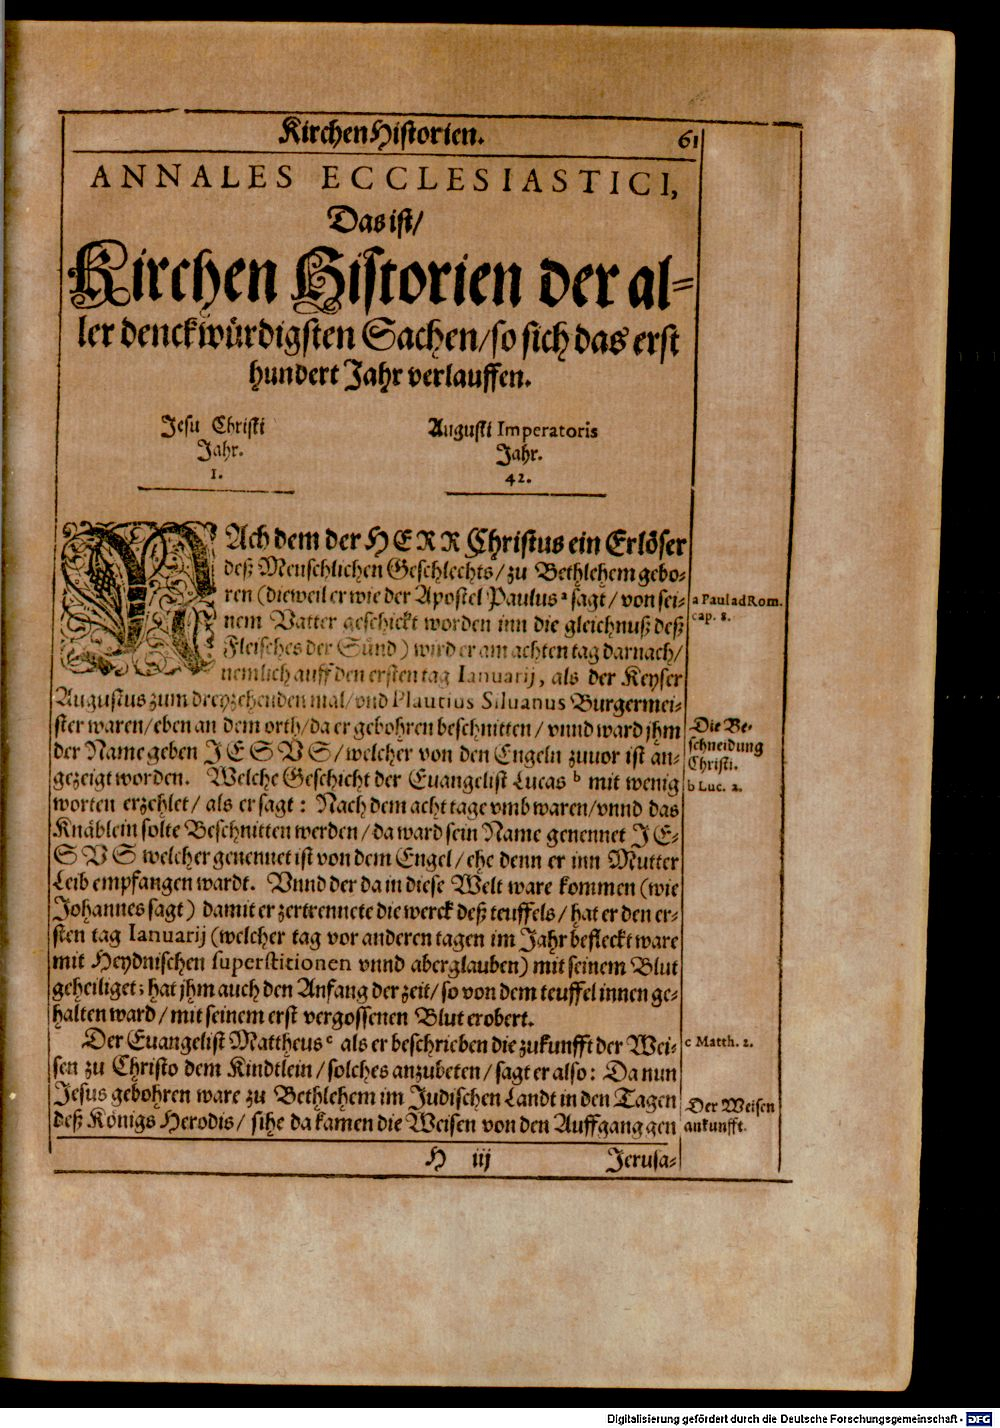 Kirchen Historien. 61
ANNALES ECCLESIASTICI,
Das ist/
Kirchen Historien der al-
ler denckwürdigsten Sachen/ so sich das erst
hundert Jahr verlauffen.
Jesu Christi
Jahr.
1.
Augusti Imperatoris
Jahr.
42.
NAch dem der HERR Christus ein Erlöser
deß Menschlichen Geschlechts/ zu Bethlehem gebo-
ren (dieweil er wie der Apostel Paulus a sagt/ von sei-
nem Vatter geschickt worden inn die gleichnuß deß
Fleisches der Sünd) wird er am achten tag darnach/
nemlich auff den ersten tag Ianuarij, als der Keyser
Augustus zum dreyzehenden mal/ vnd Plautius Siluanus Burgermei-
ster waren/ eben an dem orth/ da er gebohren beschnitten/ vnnd ward jhm
der Name geben JESVS/ welcher von den Engeln zuuor ist an-
gezeigt worden. Welche Geschicht der Euangelist Lucas b mit wenig
worten erzehlet/ als er sagt: Nach dem acht tage vmb waren/ vnnd das
Knäblein solte Beschnitten werden/ da ward sein Name genennet JE-
SVS welcher genennet ist von dem Engel/ ehe denn er inn Mutter
Leib empfangen wardt. Vnnd der da in diese Welt ware kommen (wie
Johannes sagt) damit er zertrennete die werck deß teuffels/ hat er den er-
sten tag Ianuarij (welcher tag vor anderen tagen im Jahr befleckt ware
mit Heydnischen superstitionen vnnd aberglauben) mit seinem Blut
geheiliget; hat jhm auch den Anfang der zeit/ so von dem teuffel innen ge-
halten ward/ mit seinem erst vergossenen Blut erobert.
Der Euangelist Mattheus c als er beschrieben die zukunfft der Wei-
sen zu Christo dem Kindtlein/ solches anzubeten/ sagt er also: Da nun
Jesus gebohren ware zu Bethlehem im Judischen Landt in den Tagen
deß Königs Herodis/ sihe da kamen die Weisen von den Auffgang gen
H iij Jerusa-
a Paul ad Rom.
cap. 8.
Die Be-
schneidung
Christi.
b Luc. 2.
c Matth. 2.
Der Weisen
ankunfft.
Digitalisierung gefördert durch die Deutsche Forschungsgemeinschaft - DFG